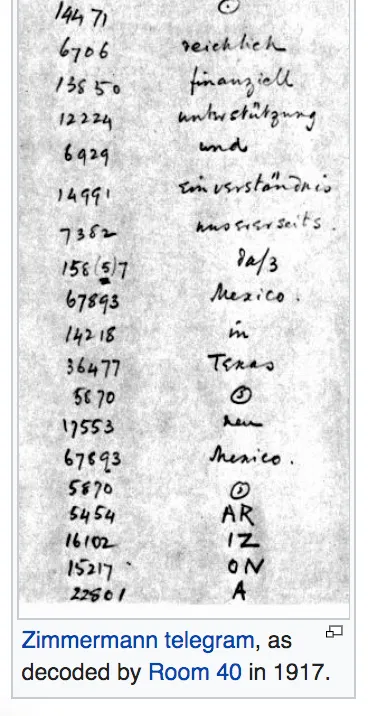 14471
6706 reichlich
13850 finanziell
12224 unterstützung
6929 und
14991 einverständnis
7382 unsererseits.
158(5)7 daß
67893 Mexico.
14218 in
36477 Texas
5870
17553 neu
67893 Mexico.
5870
5454 AR
16102 IZ
15217 ON
22801 A
Zimmermann telegram, as
decoded by Room 40 in 1917.